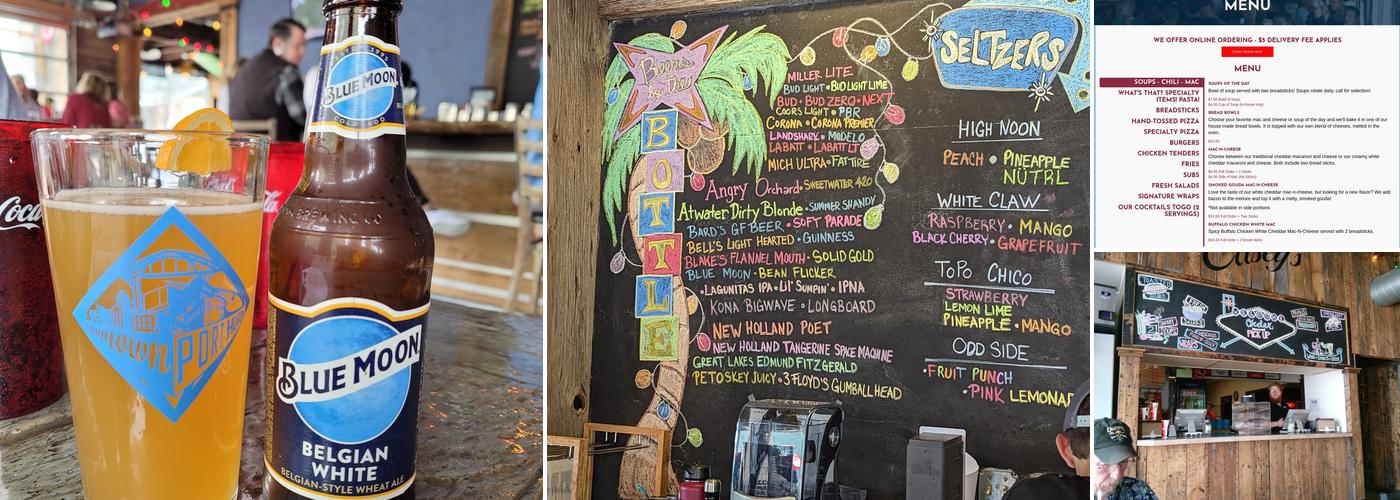 Coca
downtown
PORT HURON
EST'D 1995
BLUE MOON
COLORADO
BREWING CO
BLUE MOON
BELGIAN
WHITE
BELGIAN-STYLE WHEAT ALE
Beers
by the
BOTTLE
MILLER LITE
BUD LIGHT • BUD LIGHT LIME
BUD • BUD ZERO • NEXT
COORS LIGHT • PBR
CORONA • CORONA PREMIER
LANDSHARK • MODELO
LABATT • LABATT LT
MICH ULTRA • FAT TIRE
Angry Orchard • SWEETWATER 420
Atwater Dirty Blonde • SUMMER SHANDY
BARD'S GF BEER • SOFT PARADE
BELL'S LIGHT HEARTED • GUINNESS
BLAKE'S FLANNEL MOUTH • SOLID GOLD
BLUE MOON • BEAN FLICKER
• LAGUNITAS IPA • Lil' SUMPIN' • IPNA
KONA BIGWAVE • LONGBOARD
NEW HOLLAND POET
NEW HOLLAND TANGERINE SPACE MACHINE
GREAT LAKES EDMUND FITZGERALD
PETOSKEY JUICY • 3 FLOYD'S GUMBALL HEAD
SELTZERS
HIGH NOON
PEACH • PINEAPPLE
NÜTRL
WHITE CLAW
RASPBERRY • MANGO
BLACK CHERRY • GRAPEFRUIT
TOPO CHICO
STRAWBERRY
LEMON LIME
PINEAPPLE • MANGO
ODD SIDE
• FRUIT PUNCH
• PINK LEMONAD
MENU
WE OFFER ONLINE ORDERING - $5 DELIVERY FEE APPLIES
Order Online Here
MENU
SOUPS - CHILI - MAC
WHAT'S THAT? SPECIALTY
ITEMS! PASTA!
BREADSTICKS
HAND-TOSSED PIZZA
SPECIALTY PIZZA
BURGERS
CHICKEN TENDERS
FRIES
SUBS
FRESH SALADS
SIGNATURE WRAPS
OUR COCKTAILS TOGO (2
SERVINGS)
SOUPS OF THE DAY
Bowl of soup served with two breadsticks! Soups rotate daily, call for selection!
$7.00 Bowl of Soup
$4.00 Cup of Soup (in-house only)
BREAD BOWLS
Choose your favorite mac and cheese or soup of the day and we'll bake it in one of our
house made bread bowls. It is topped with our own blend of cheeses, melted in the
oven.
MAC-N-CHEESE
Choose between our traditional cheddar macaroni and cheese or our creamy white
cheddar macaroni and cheese. Both include two bread sticks.
$9.00 Full Order + 2 Sticks
$4.00 Side of Mac (No Sticks)
SMOKED GOUDA MAC-N-CHEESE
Love the taste of our white cheddar mac-n-cheese, but looking for a new flavor? We add
bacon to the mixture and top it with a melty, smoked gouda!
*Not available in side portions
$10.00 Full Order + Two Sticks
BUFFALO CHICKEN WHITE MAC
Spicy Buffalo Chicken White Cheddar Mac-N-Cheese served with 2 breadsticks.
$10.00 Full order + 2 bread sticks
Casey's
TOASTED
SUBS
WRAPS
Order
PICK UP